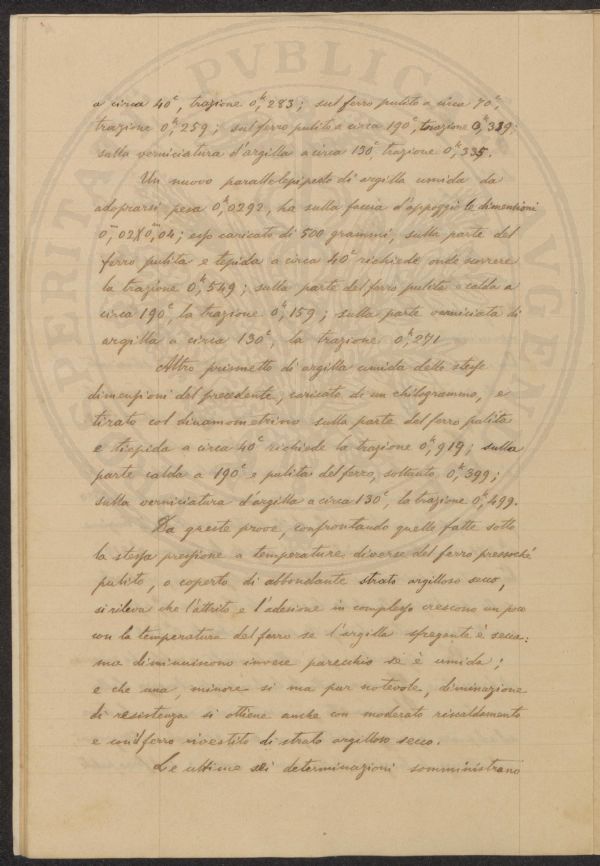 PVBLIC
SPERITAS
VGEN
a circa 40°, trazione 0,ᵏ283; sul ferro pulito a circa 70°,
trazione 0,ᵏ259; sul ferro pulito a circa 190°, trazione 0,ᵏ339;
sulla verniciatura d'argilla a circa 130° trazione 0,ᵏ335.
Un nuovo parallelepipedo di argilla umida da
adoprarsi pesa 0,ᵏ0292, ha sulla faccia d'appoggio le dimensioni
0,ᵐ02X0,ᵐ04; esso caricato di 500 grammi, sulla parte del
ferro pulita e tepida a circa 40° richiede onde scorrere
la trazione 0,ᵏ549; sulla parte del ferro pulita e calda a
circa 190°, la trazione 0,ᵏ159; sulla parte verniciata di
argilla a circa 130°, la trazione 0,ᵏ271
Altro prismetto di argilla umida delle stesse
dimensioni del precedente, caricato di un chilogrammo, e
tirato col dinamometrino sulla parte del ferro pulita
e tiepida a circa 40° richiede la trazione 0,ᵏ919; sulla
parte calda a 190° e pulita del ferro, soltanto 0,ᵏ399;
sulla verniciatura d'argilla a circa 130°, la trazione 0,ᵏ499.
Da queste prove, confrontando quelle fatte sotto
la stessa pressione a temperature diverse del ferro pressoché
pulito, o coperto di abbondante strato argilloso secco,
si rileva che l'attrito e l'adesione in complesso crescono un poco
con la temperatura del ferro se l'argilla sfregante è secca:
ma diminuiscono invece parecchio se è umida;
e che una, minore si ma pur notevole, diminuzione
di resistenza si ottiene anche con moderato riscaldamento
e con ferro rivestito di strato argilloso secco.
Le ultime sei determinazioni somministrano